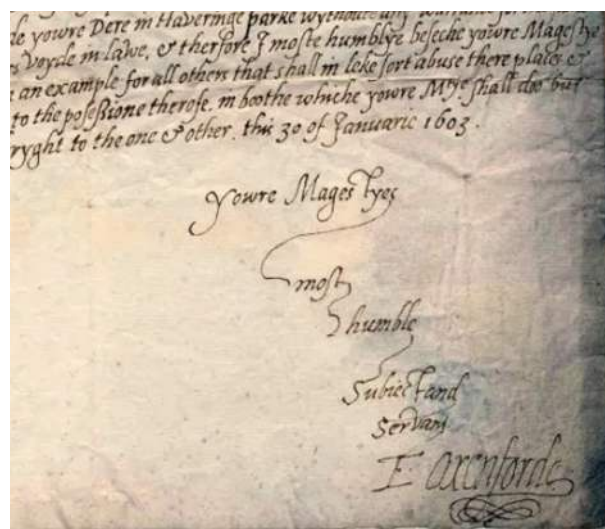 yowre Dere in Haveringe parke wythoute any
voyde in lawe, & therfore I moste humblye beseche yowre Magestye
an example for all others that shall in leke sort abuse there places &
to the possessione therofe. in boothe whiche yowre M^tye shall doo but
ryght to the one & other. this 30 of Januarie 1603.
yowre Magestyes
most
humble
Subiect and
Servant
E. Oxenforde